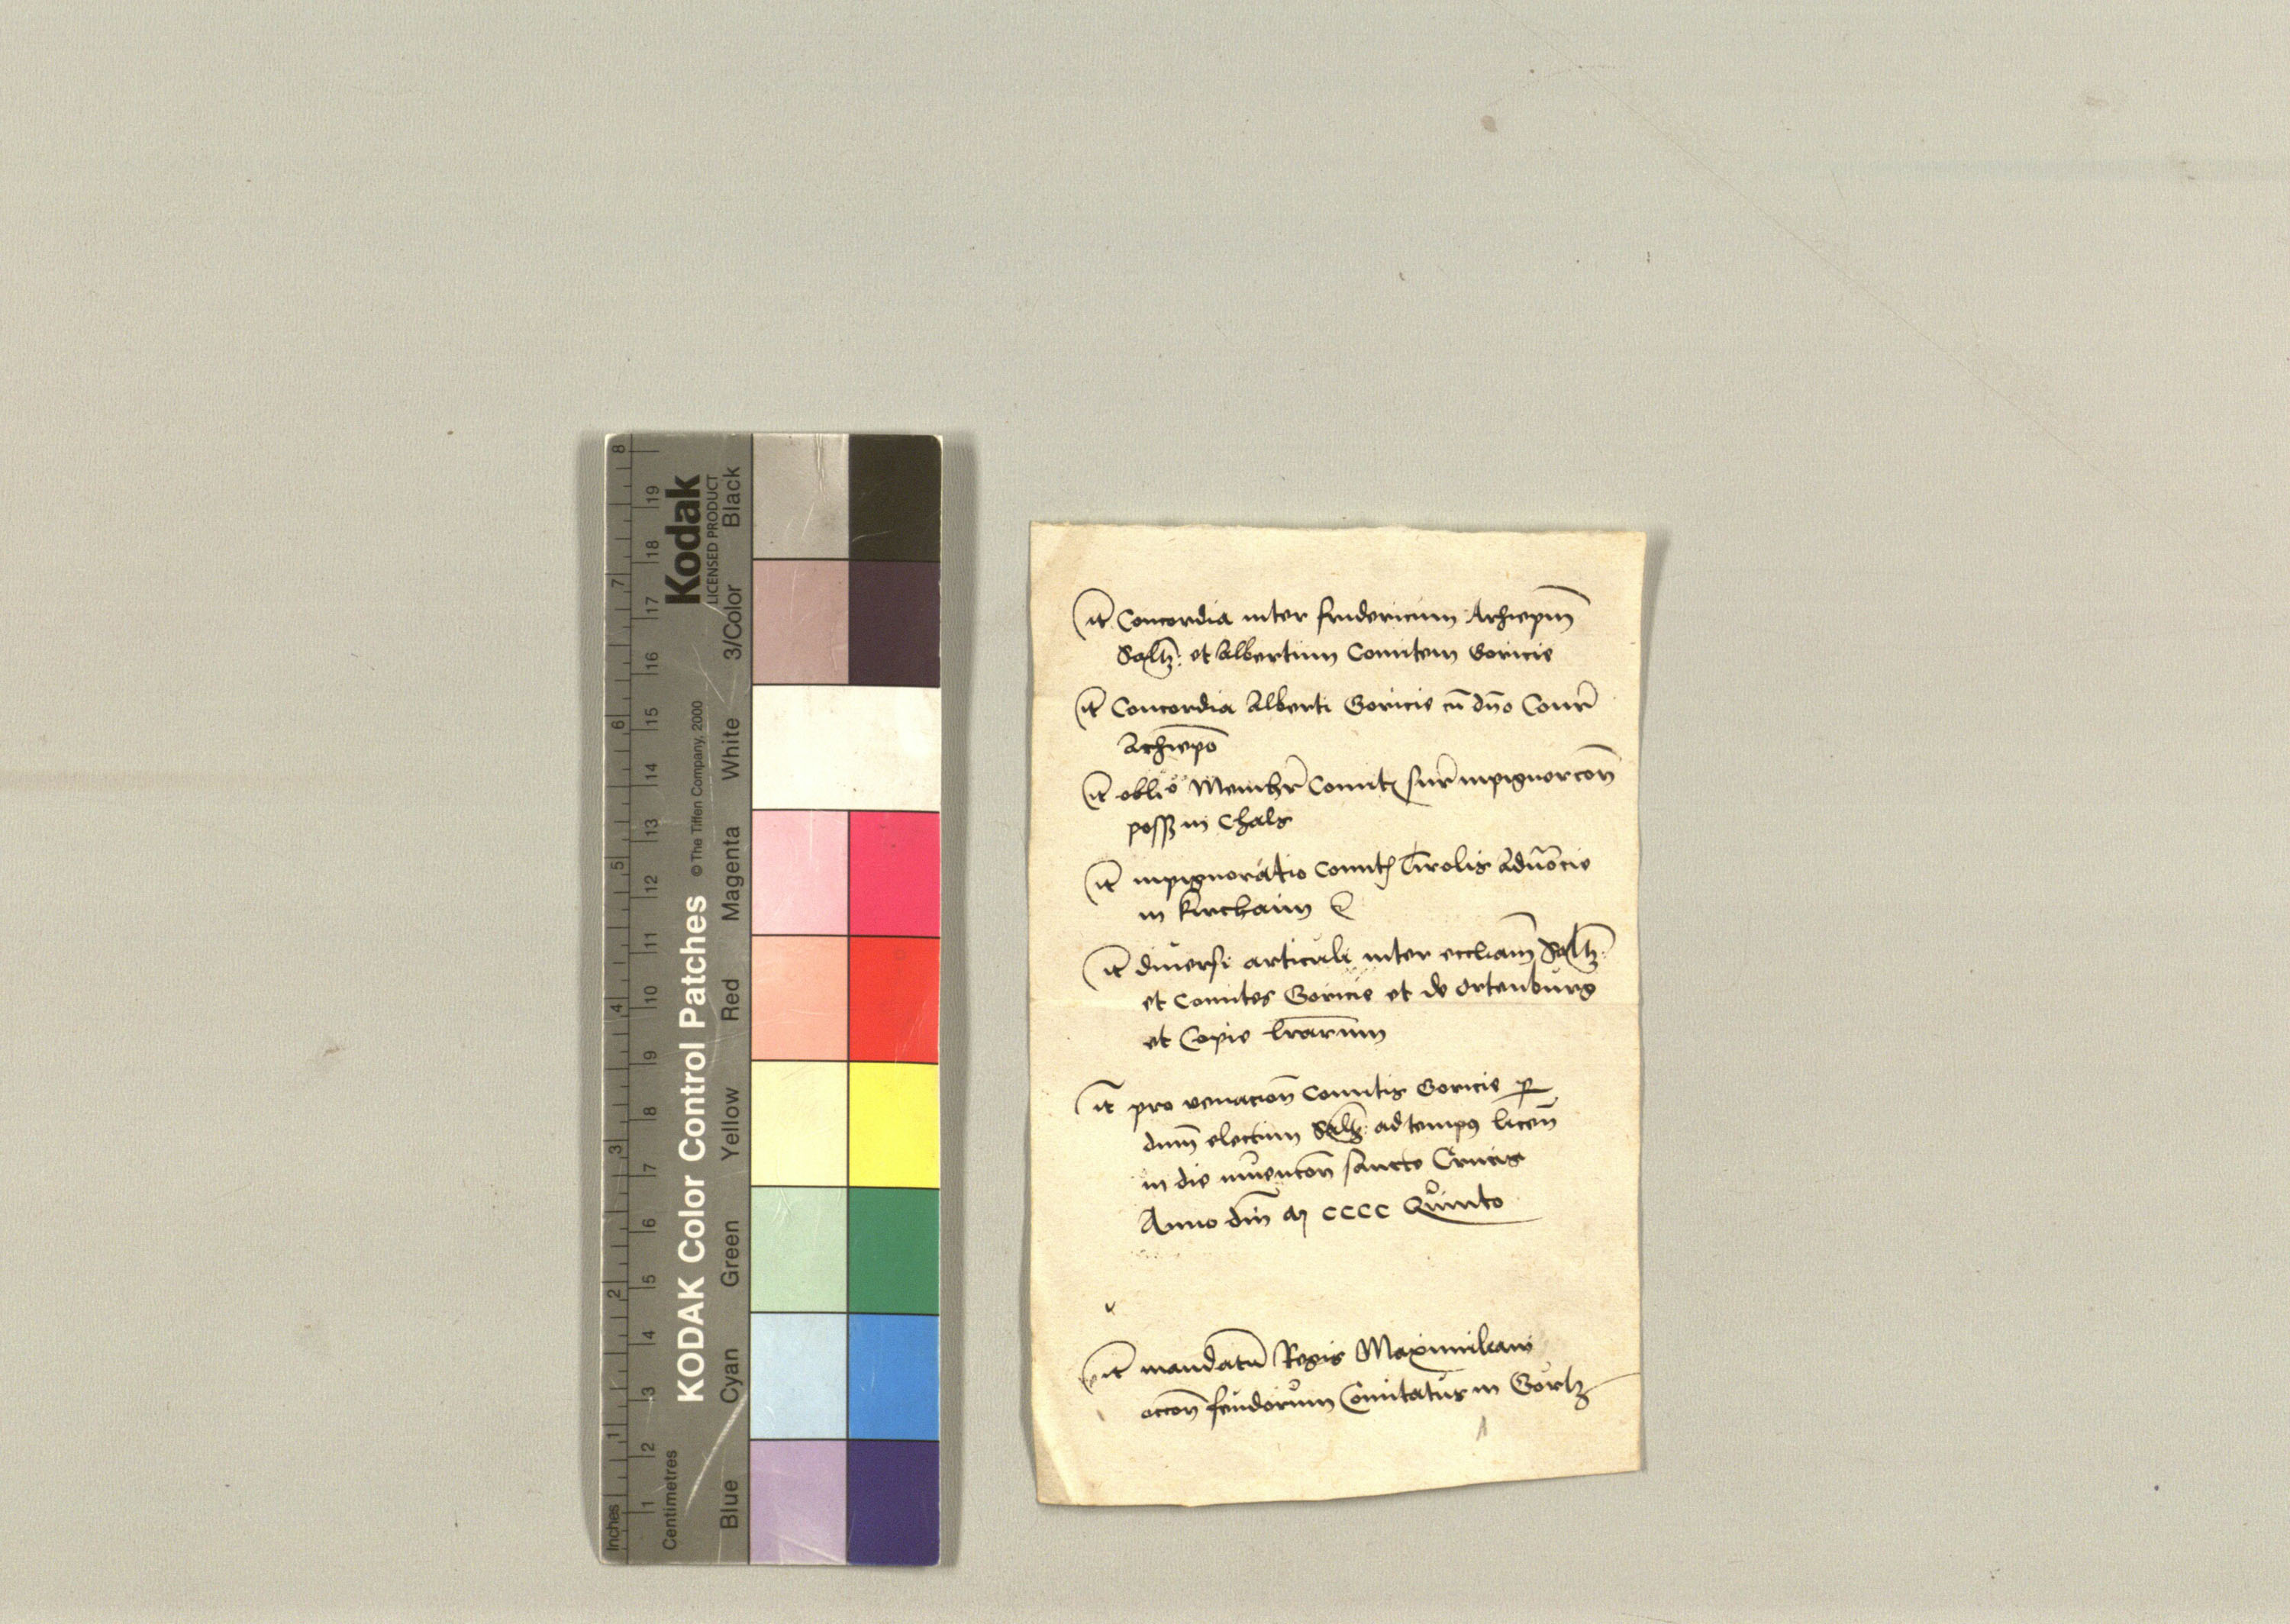 8
7
6
5
4
3
2
1
Inches
19
18
17
16
15
14
13
12
11
10
9
8
7
6
5
4
3
2
1
Centimetres
Kodak
LICENSED PRODUCT
KODAK Color Control Patches © The Tiffen Company, 2000
Black
3/Color
White
Magenta
Red
Yellow
Green
Cyan
Blue
it Concordia inter fridericum Archiepm
Saltz: et Albertum Comitem Goricie
it Concordia Alberti Goricie cu dno Conr
Archiepo
it oblio Meinhr Comit sup inpignorcon
poss in Chals
it inpignoratio Comit Tirolis aduocie
in kirchaim
it diuersi articuli inter eccliam Saltz:
et Comites Goricie et de Ortenburg
et Copie lrarum
it pro venacion Comitis Goricie p
dnm electum Saltz: ad tempus licen
in die inuencon sancte Crucis
Anno dni M CCCC Quinto
it mandatu Regis Maximiliani
occon feudorum Comitatus in Görtz